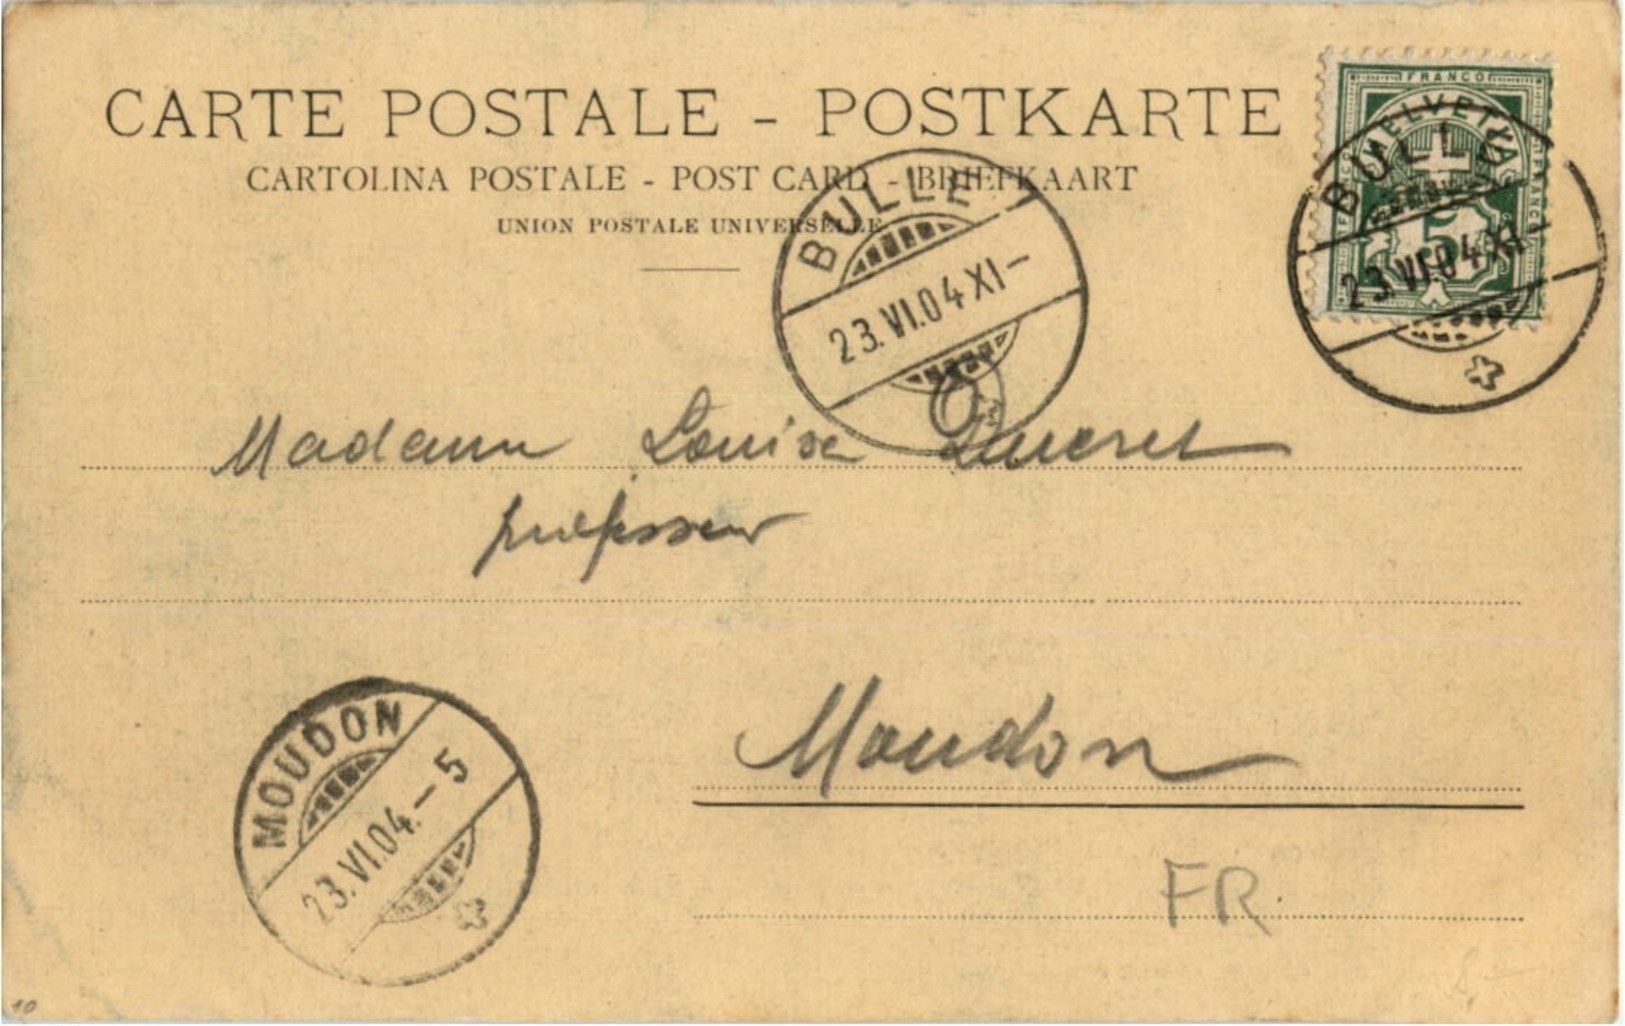 CARTE POSTALE - POSTKARTE
CARTOLINA POSTALE - POST CARD - BRIEFKAART
UNION POSTALE UNIVERSELLE
FRANCO
HELVETIA
5
BULLE
23.VI.04 XI-
BULLE
23.VI.04 XI-
Madame Louise
professeur
Moudon
MOUDON
23.VI.04.-5
FR.
10